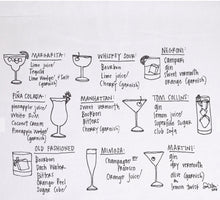 MARGARITA:
Lime juice/
Tequila
Lime Wedge/ + Salt
(garnish)
WHISKEY SOUR:
Bourbon
Lime juice/
Cherry (garnish)
NEGRONI:
Campari
gin
Sweet vermouth
Orange (garnish)
PIÑA COLADA:
pineapple juice/
White Rum
Coconut Cream
Pineapple Wedge/
(garnish)
MANHATTAN:
Sweet Vermouth
Bourbon
Bitters
Cherry (garnish)
TOM COLLINS:
Gin
Lemon Juice/
Superfine Sugar
Club Soda
OLD FASHIONED
Bourbon
Bitters
Orange Peel
Sugar Cube/
MIMOSA:
Champagne or
Prosecco
Orange Juice/
MARTINI:
Gin
dry vermouth
olive or
lemon twist